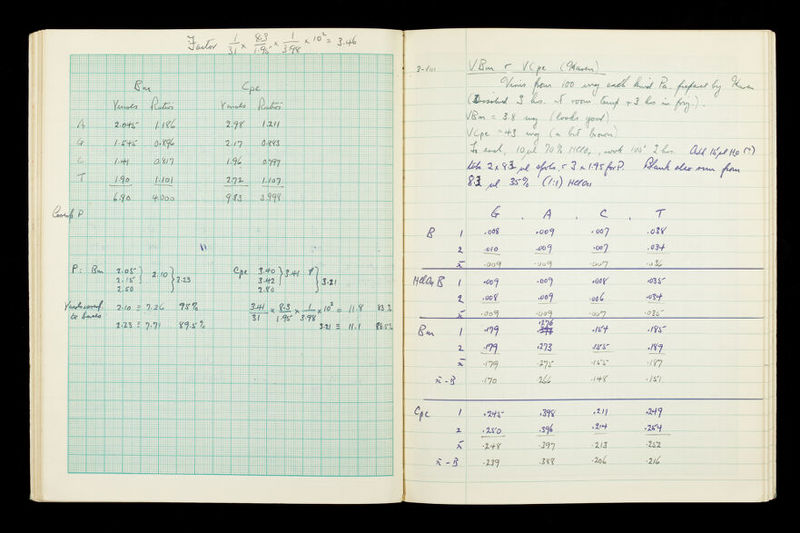 Factor 1/31 × 8.3/1.95 × 1/3.98 × 10² = 3.46
Bm Cpe
Ratios Ratios
A 2.045 1.186 2.98 1.211
G 1.545 0.896 2.17 0.883
C 1.41 0.817 1.96 0.797
T 1.90 1.101 2.72 1.107
6.90 4.000 9.83 3.998
P
P: Bm 2.05 } 2.10 } 2.23 Cpe 3.40 } 3.41 } 3.21
2.15 3.42
2.50 2.80
2.10 ≡ 7.26 95% 3.41/31 × 8.3/1.95 × 1/3.98 × 10² = 11.8 83%
to bases 2.23 ≡ 7.71 89.5% 3.21 ≡ 11.1
VBm & VCpe (Maren)
Virus from 100 mg each dried Pa. prepared by Maren
3 hrs. at room temp + 3 hrs in frig.).
VBm = 3.8 mg (looks good)
VCpe = 4.3 mg (a bit brown)
To each, 10 µl 70% HClO₄, 100° 2 hrs. Add 15 µl H₂O
2 × 8.3 µl spots, & 3 × 1.95 for P. Blank also run from
8.3 µl 35% (1:1) HClO₄
G A C T
B 1 .008 .009 .007 .038
2 .010 .009 .007 .034
x̄ .009 .009 .007 .036
HClO₄ B 1 .009 .009 .008 .035
2 .008 .009 .006 .034
x̄ .009 .009 .007 .035
Bm 1 .179 .276 .154 .185
2 .179 .273 .155 .189
x̄ .179 .275 .155 .187
x̄ - B .170 .266 .148 .151
Cpe 1 .245 .398 .211 .249
2 .250 .396 .214 .254
x̄ .248 .397 .213 .252
x̄ - B .239 .388 .206 .216